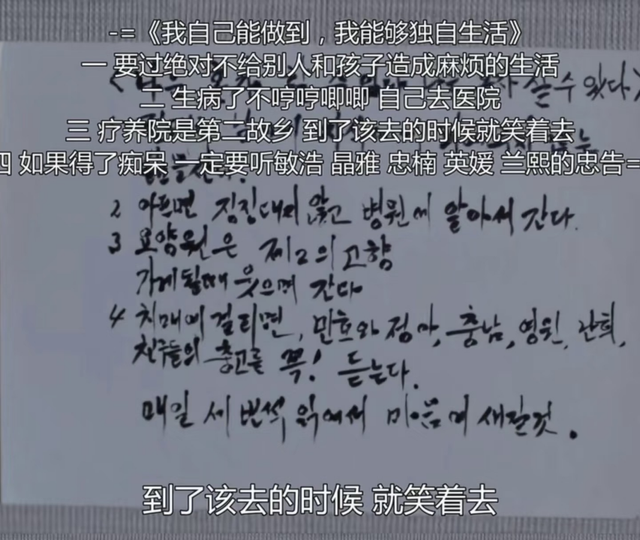 -=《我自己能做到，我能够独自生活》
一 要过绝对不给别人和孩子造成麻烦的生活
二 生病了不哼哼唧唧 自己去医院
三 疗养院是第二故乡 到了该去的时候就笑着去
四 如果得了痴呆 一定要听敏浩 晶雅 忠楠 英媛 兰熙的忠告=
살 수 있다>
2 아프면 징징대지 않고 병원에 알아서 간다.
3 요양원은 제2의 고향
가게 될때 웃으며 간다
4 치매에 걸리면, 민호와 정아, 충남, 영원, 난희,
친구들의 충고를 꼭! 듣는다.
매일 세 번씩 읽어서 마음에 새길것.
到了该去的时候 就笑着去